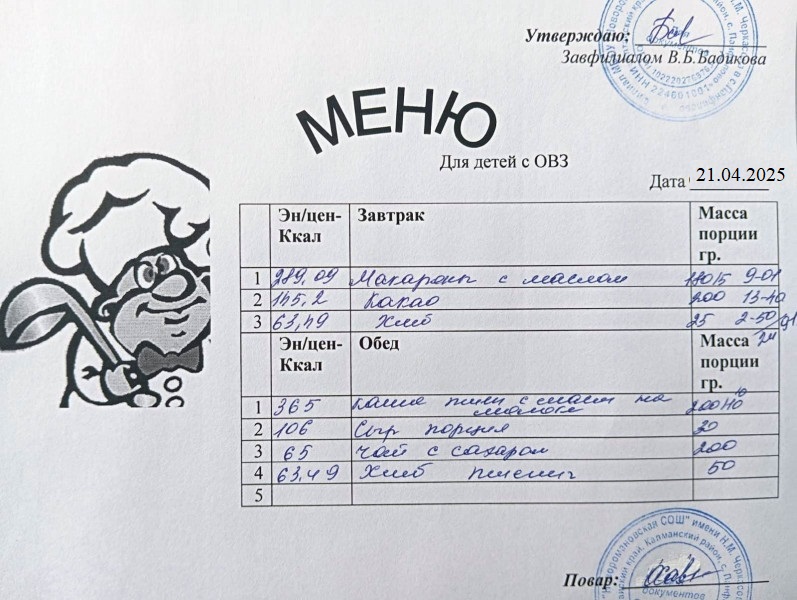 Утверждаю:
Завфилиалом В.Б.Бадикова
МЕНЮ
Для детей с ОВЗ
Дата 21.04.2025
Эн/цен-Ккал Завтрак Масса порции гр.
1 289,09 Макароны с маслом 180/5 9-01
2 145,2 Какао 200 13-40
3 63,49 Хлеб 25 2-50
Эн/цен-Ккал Обед Масса порции гр.
1 365 каша пшен с маслом на молоке 200/10
2 106 Сыр порция 20
3 65 чай с сахаром 200
4 63,49 Хлеб пшенич 50
5
Повар: